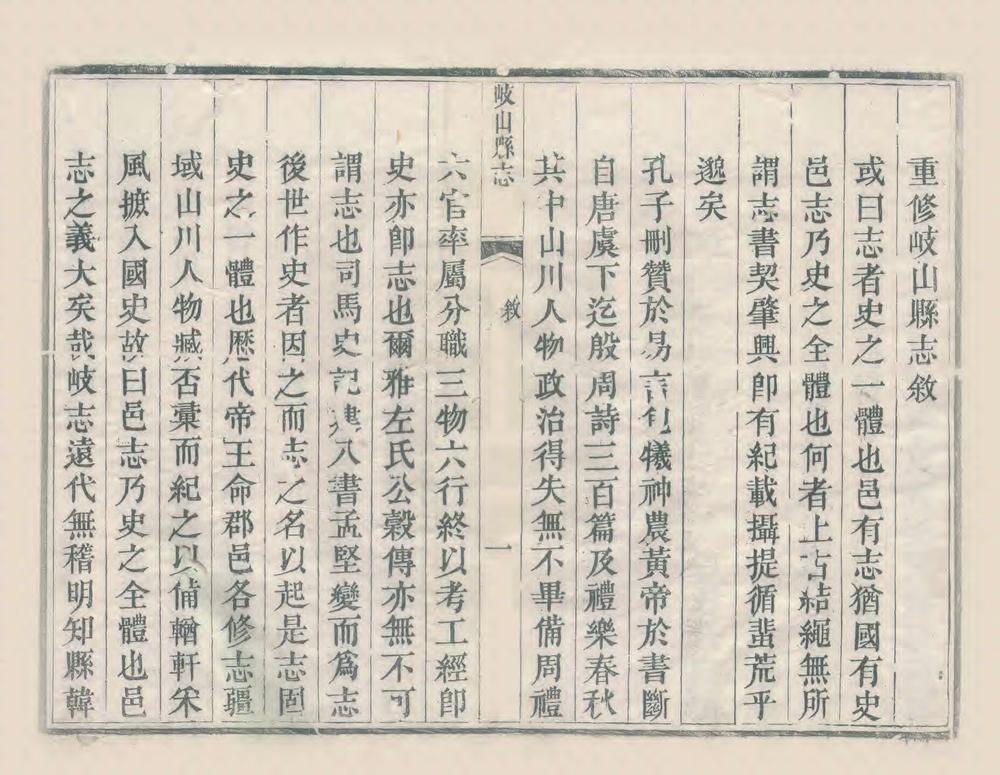 重修岐山縣志敘
或曰志者史之一體也邑有志猶國有史
邑志乃史之全體也何者上古結繩無所
謂志書契肇興卽有紀載攝提循蜚荒乎
邈矣
孔子刪贊於易言包犧神農黃帝於書斷
自唐虞下迄殷周詩三百篇及禮樂春秋
其中山川人物政治得失無不畢備周禮
岐山縣志
敘
一
六官率屬分職三物六行終以考工經卽
史亦卽志也爾雅左氏公穀傳亦無不可
謂志也司馬史記建八書孟堅變而爲志
後世作史者因之而志之名以起是志固
史之一體也歷代帝王命郡邑各修志疆
域山川人物臧否彚而紀之以備輶軒采
風摭入國史故曰邑志乃史之全體也邑
志之義大矣哉岐志遠代無稽明知縣韓